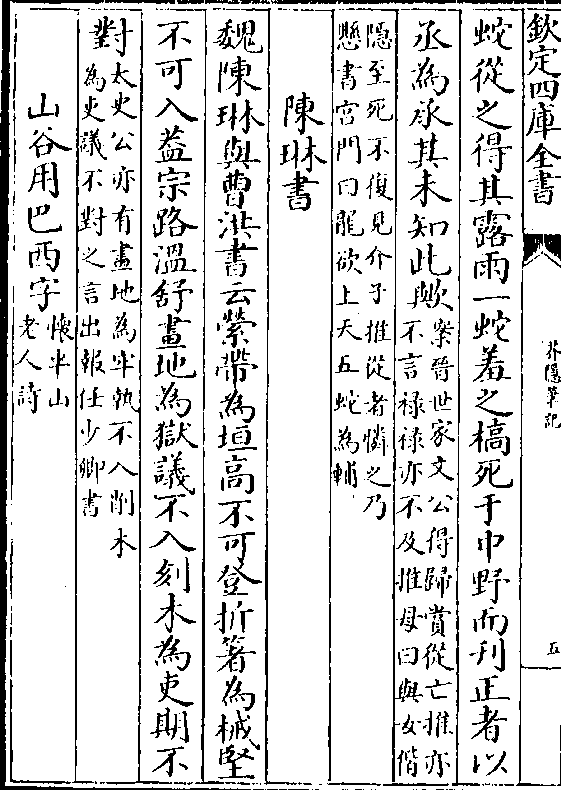 欽定四庫全書
芥隱筆記
五
蛇從之得其露雨一蛇羞之槁死于中野而刊正者以
丞為承其未知此歟
案晉世家文公得歸賞從亡推亦
不言祿祿亦不及推母曰與女偕
隱至死不復見介子推從者憐之乃
懸書宮門曰龍欲上天五蛇為輔
陳琳書
魏陳琳與曹洪書云縈帶為垣高不可登折箸為械堅
不可入葢宗路溫舒畫地為獄議不入刻木為吏期不
對
太史公亦有畫地為牢執不入削木
為吏議不對之言出報任少卿書
山谷用巴西字
懷半山
老人詩